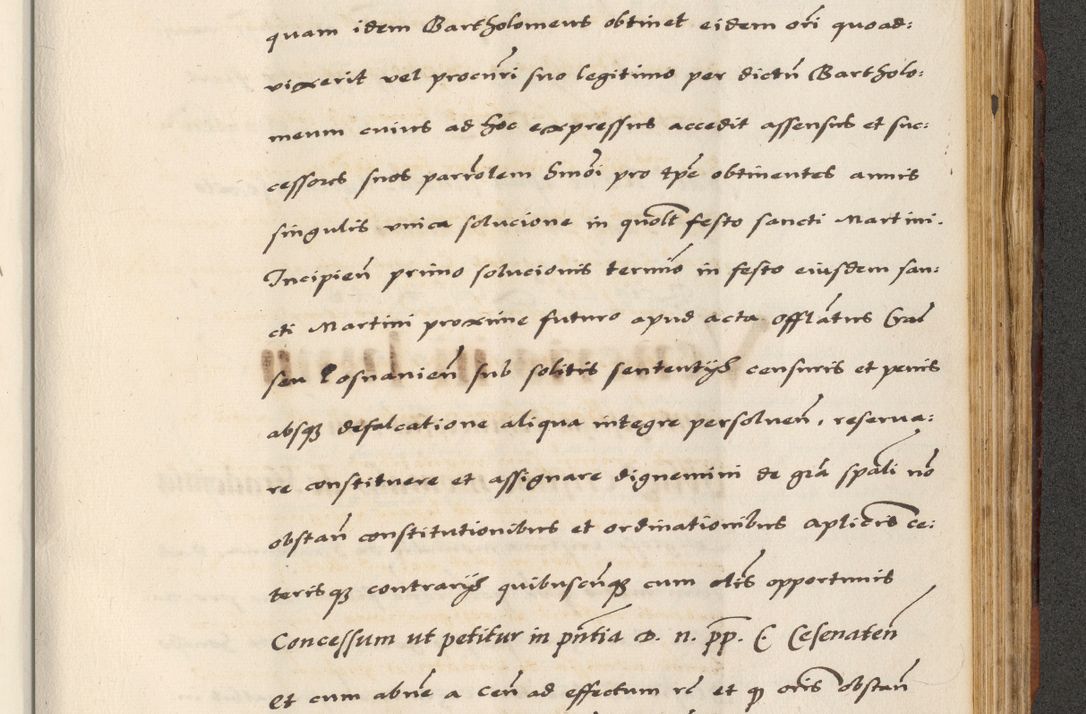 quam idem Bartholomeus obtinet eidem ori quoad:
vixerit vel procuri suo legitimo per dictu Bartholo:
meum cuius ad hoc expressus accedit assensus et suc:
cessores suos parrolem hmoi pro tpe obtinentes annis
singulis vnica solucione in quolt festo sancti Martini.
Incipien primo solucionis termio in festo eiusdem san:
cti Martini proxime futuro apud acta offlatus
seu Posnanien sub solitis sententijs censuris et penis
absq defalcatione aliqua integre persoluen, reserua:
re constituere et assignare dignemini de gra spali no
obstan constitutionibus et ordinationibus aplicis ce:
terisq contrarijs quibuscunq cum clis opportunis
Concessum ut petitur in pntia d. n. pp. C Cesenaten
Et cum abne a cen ad effectum re et q oris obstan